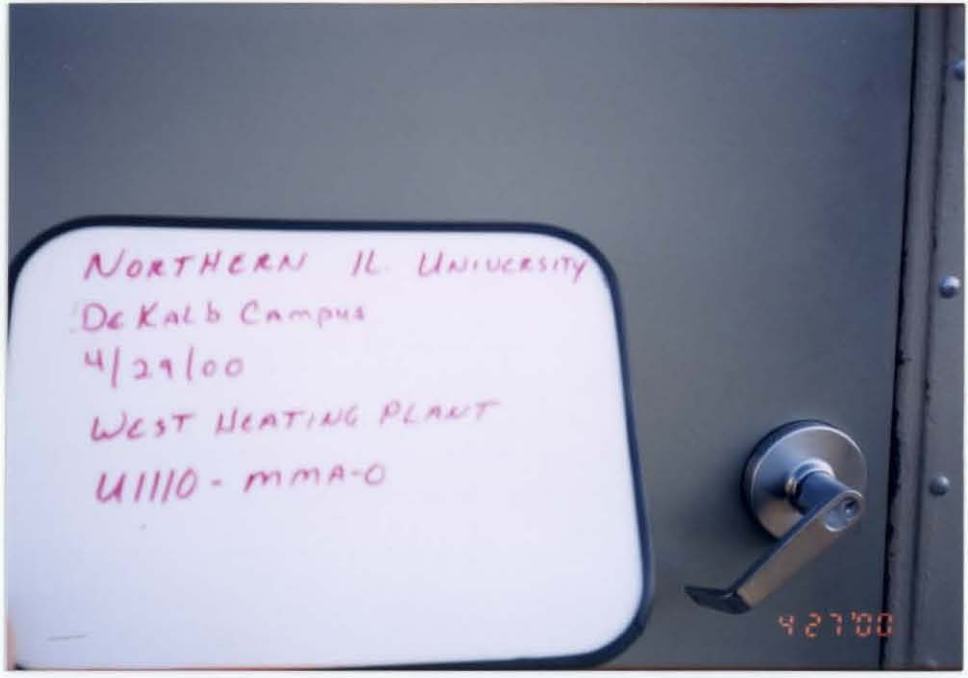 NORTHERN IL. UNIVERSITY
DeKalb Campus
4/29/00
WEST HEATING PLANT
U1110-MMA-0
4 27 '00